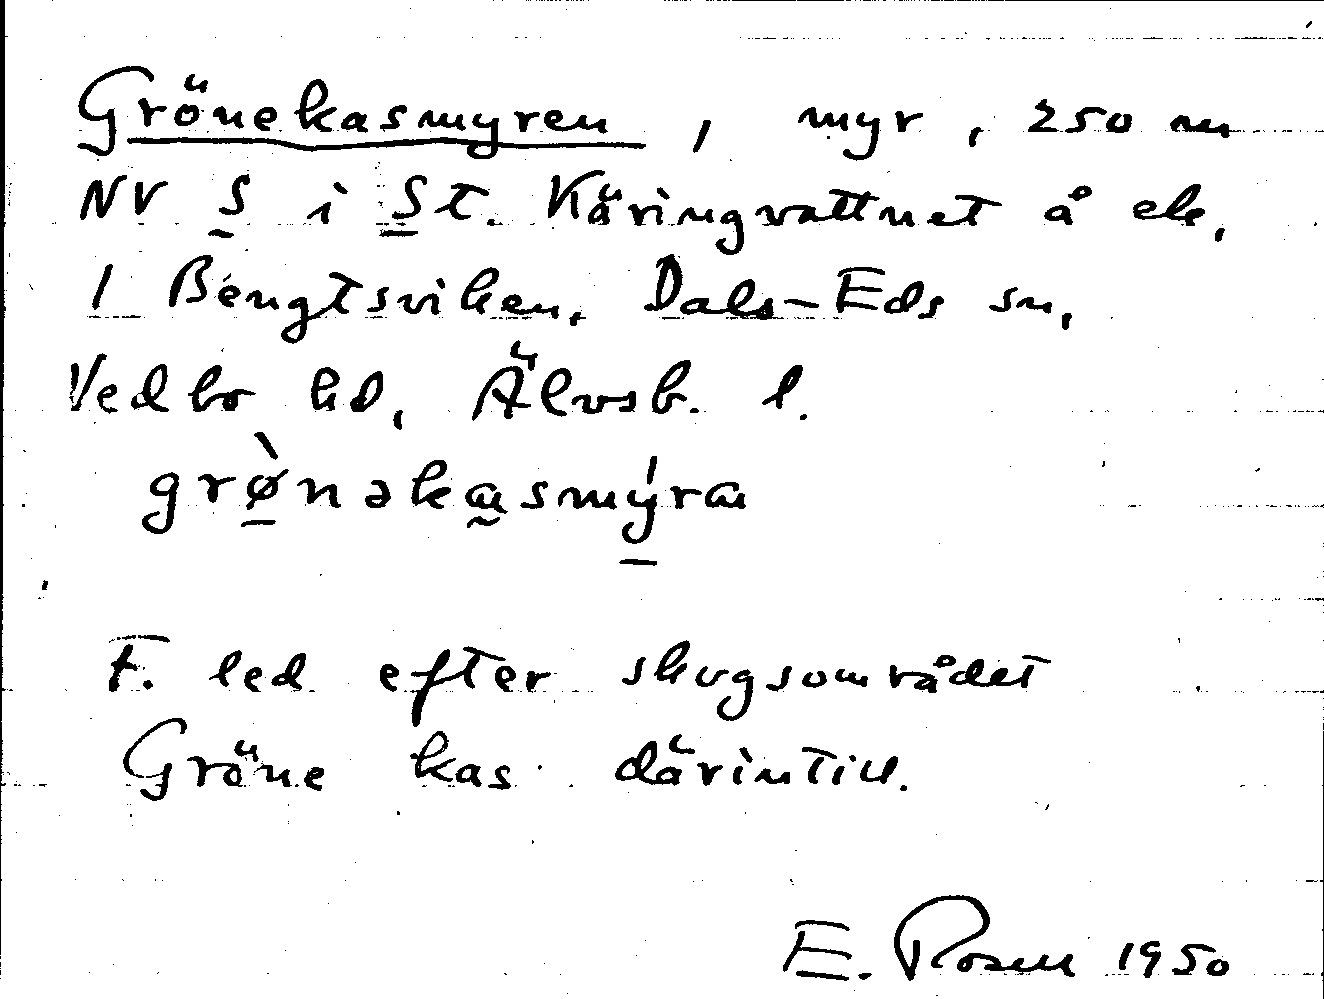 Grönekasmyren, myr, 250 m
NV S i St. Käringvattnet å ek.
1 Bengtsviken, Dals-Eds sn,
Vedbo hd, Älvsb. l.
grø̀nəkasmýra
F. led efter skogsområdet
Gröne kas därintill.
E. Rosen 1950